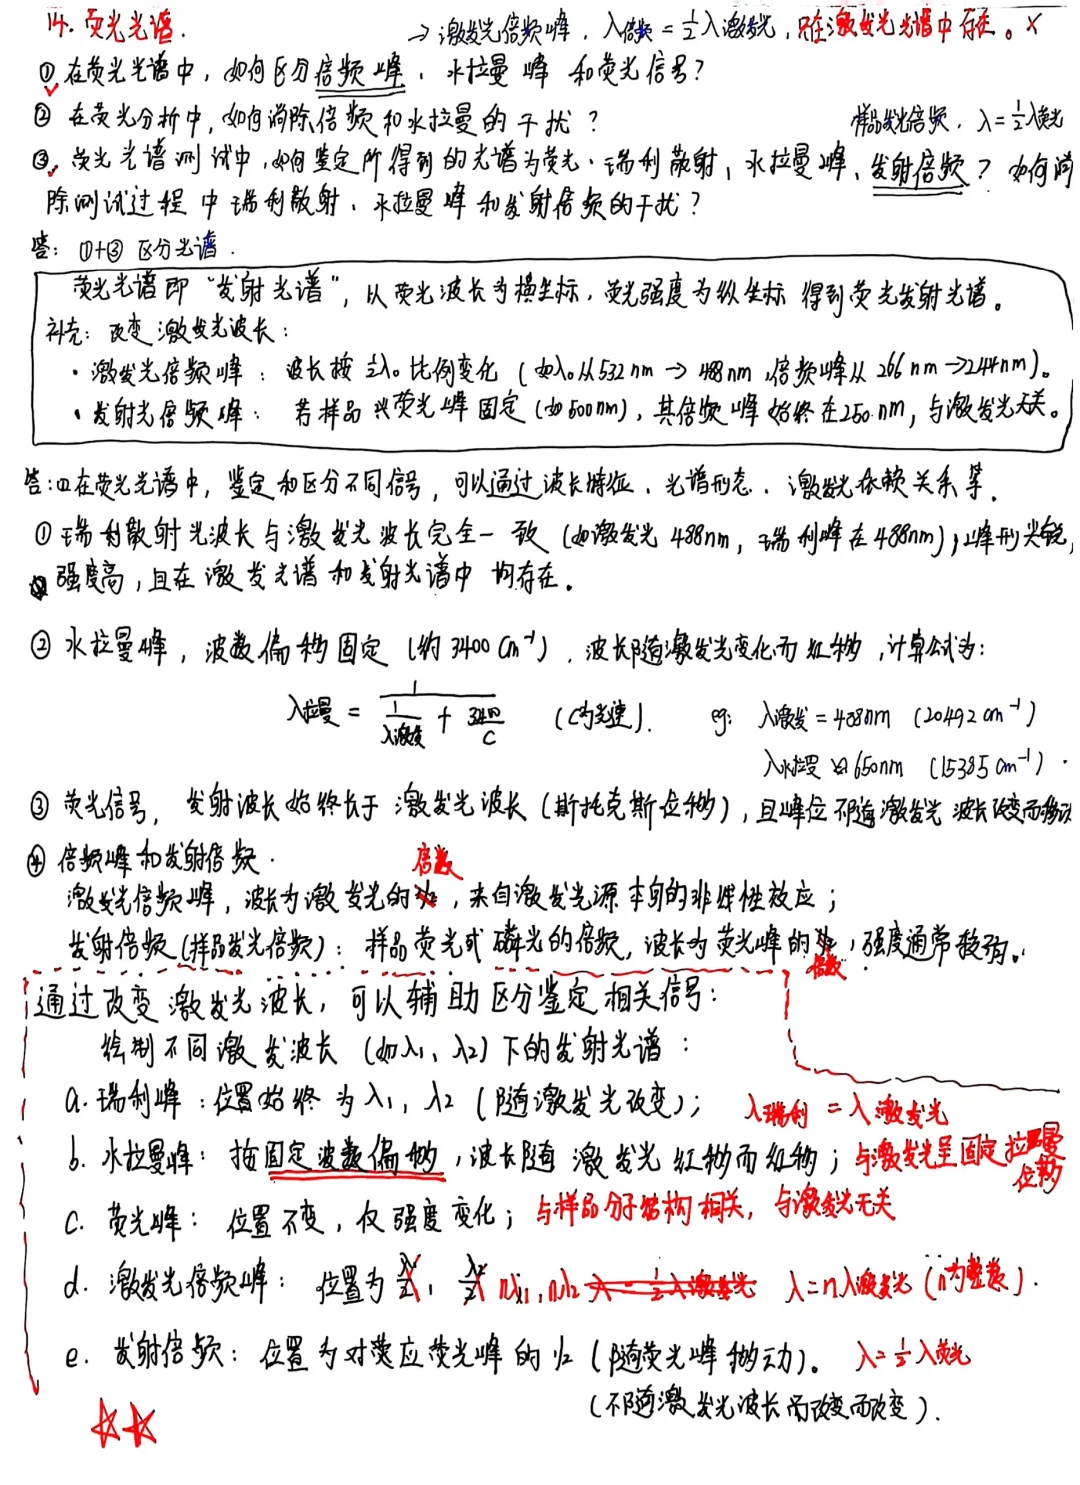 14. 荧光光谱.
→ 激发光倍频峰, λ倍频 = 1/2 λ激发光, 只在激发光光谱中存在。×
① 在荧光光谱中, 如何区分倍频峰、水拉曼峰和荧光信号?
② 在荧光分析中, 如何消除倍频和水拉曼的干扰?
样品发光倍频, λ = 1/2 λ荧光
③ 荧光光谱测试中, 如何鉴定所得到的光谱为荧光、瑞利散射、水拉曼峰、发射倍频? 如何消
除测试过程中瑞利散射、水拉曼峰和发射倍频的干扰?
答: ①+③ 区分光谱.
荧光光谱即“发射光谱”, 以荧光波长为横坐标, 荧光强度为纵坐标得到荧光发射光谱。
补充: 改变激发光波长:
· 激发光倍频峰: 波长按 1/2 λ₀ 比例变化 (如λ₀从532nm → 488nm, 倍频峰从266nm→244nm)。
· 发射光倍频峰: 若样品荧光峰固定(如500nm), 其倍频峰始终在250nm, 与激发光无关。
答: 在荧光光谱中, 鉴定和区分不同信号, 可以通过波长特征、光谱形态、激发光依赖关系等.
① 瑞利散射光波长与激发光波长完全一致 (如激发光488nm, 瑞利峰在488nm), 峰形尖锐,
强度高, 且在激发光谱和发射光谱中均存在。
② 水拉曼峰, 波数偏移固定 (约3400 cm⁻¹), 波长随激发光变化而红移, 计算公式为:
λ拉曼 = 1 / (1/λ激发 + 3400/C) (C为光速). eg: λ激发 = 488nm (20492 cm⁻¹)
λ水拉曼 ≈ 650nm (15385 cm⁻¹).
③ 荧光信号, 发射波长始终长于激发光波长 (斯托克斯位移), 且峰位不随激发光波长改变而移动
④ 倍频峰和发射倍频.
激发光倍频峰, 波长为激发光的倍数, 来自激发光源本身的非线性效应;
发射倍频 (样品发光倍频): 样品荧光或磷光的倍频, 波长为荧光峰的倍数, 强度通常较弱。
通过改变激发光波长, 可以辅助区分鉴定相关信号:
绘制不同激发波长 (如λ₁、λ₂) 下的发射光谱:
a. 瑞利峰: 位置始终为λ₁, λ₂ (随激发光改变); λ瑞利 = λ激发光
b. 水拉曼峰: 按固定波数偏移, 波长随激发光红移而红移; 与激发光呈固定拉曼位移
c. 荧光峰: 位置不变, 仅强度变化; 与样品分子结构相关, 与激发光无关
d. 激发光倍频峰: 位置为 λ₁/2, λ₂/2 nλ₁, nλ₂ λ = 1/2 λ激发光 λ = nλ激发光 (n为整数).
e. 发射倍频: 位置为对荧应荧光峰的1/2 (随荧光峰移动)。 λ = 1/2 λ荧光
(不随激发光波长而改变而改变).